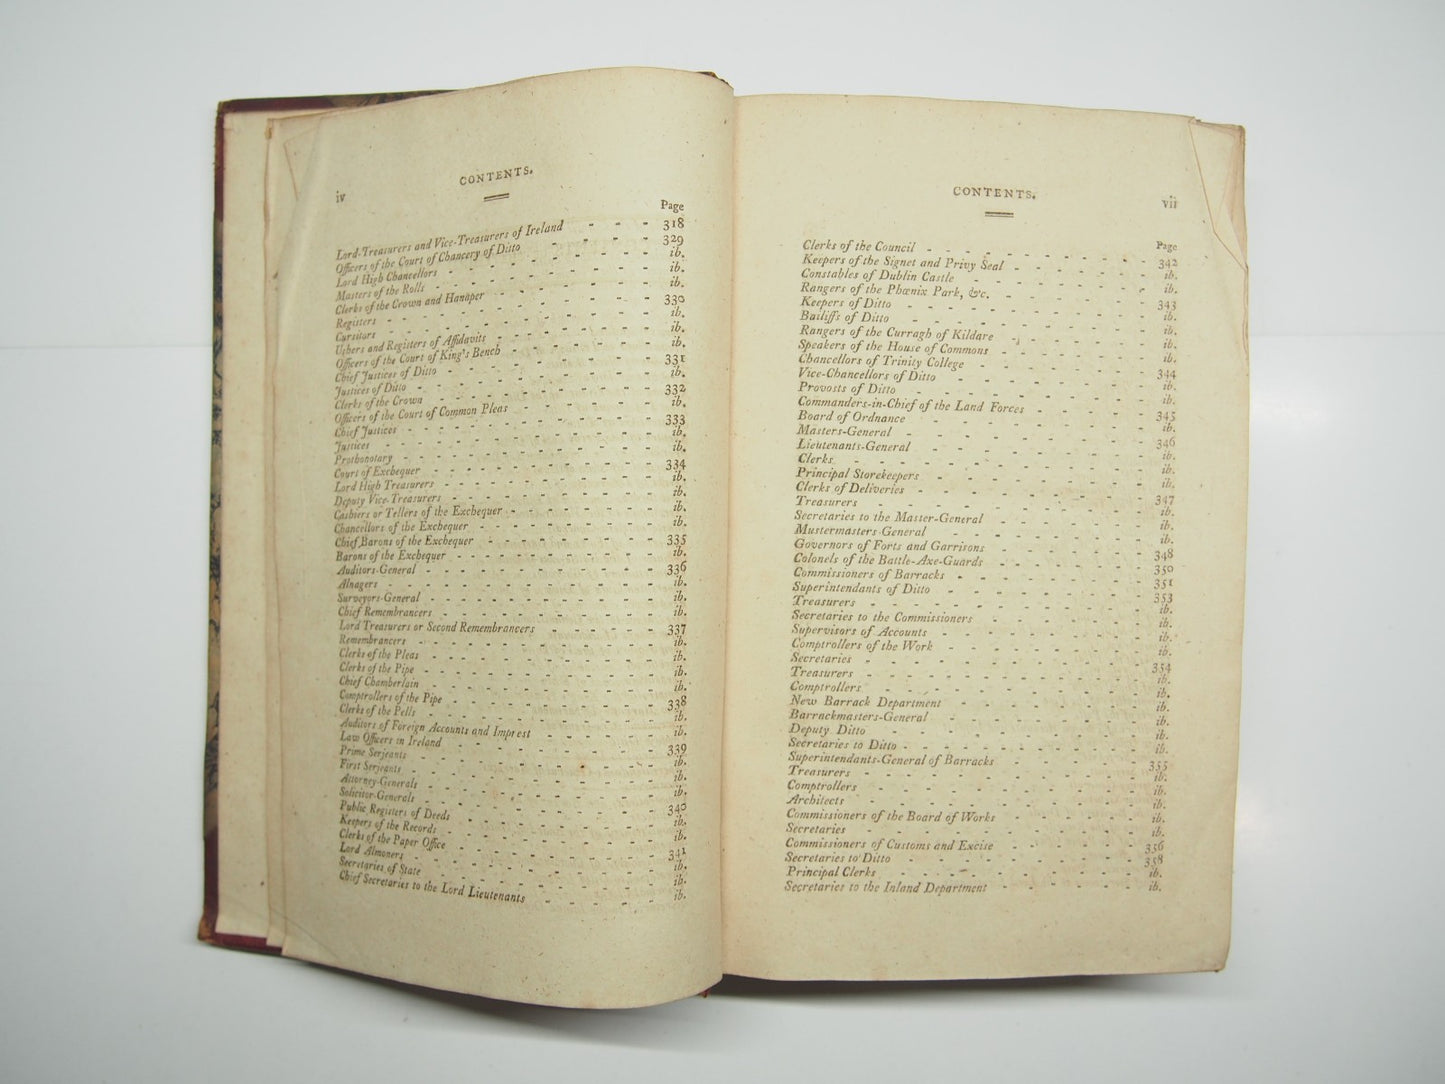 iv
CONTENTS.
Page
Lord-Treasurers and Vice-Treasurers of Ireland - - - 318
Officers of the Court of Chancery of Ditto - - - 329
Lord High Chancellors - - - ib.
Masters of the Rolls - - - ib.
Clerks of the Crown and Hanaper - - - ib.
Registers - - - 330
Cursitors - - - ib.
Ushers and Registers of Affidavits - - - ib.
Officers of the Court of King's Bench - - - ib.
Chief Justices of Ditto - - - 331
Justices of Ditto - - - ib.
Clerks of the Crown - - - 332
Officers of the Court of Common Pleas - - - ib.
Chief Justices - - - 333
Justices - - - ib.
Prothonotary - - - ib.
Court of Exchequer - - - 334
Lord High Treasurers - - - ib.
Deputy Vice-Treasurers - - - ib.
Cashiers or Tellers of the Exchequer - - - ib.
Chancellors of the Exchequer - - - ib.
Chief Barons of the Exchequer - - - 335
Barons of the Exchequer - - - ib.
Auditors-General - - - 336
Alnagers - - - ib.
Surveyors-General - - - ib.
Chief Remembrancers - - - ib.
Lord Treasurers or Second Remembrancers - - - 337
Remembrancers - - - ib.
Clerks of the Pleas - - - ib.
Clerks of the Pipe - - - ib.
Chief Chamberlain - - - ib.
Comptrollers of the Pipe - - - 338
Clerks of the Pells - - - ib.
Auditors of Foreign Accounts and Imprest - - - ib.
Law Officers in Ireland - - - 339
Prime Serjeants - - - ib.
First Serjeants - - - ib.
Attorney-Generals - - - ib.
Solicitor-Generals - - - 340
Public Registers of Deeds - - - ib.
Keepers of the Records - - - ib.
Clerks of the Paper Office - - - 341
Lord Almoners - - - ib.
Secretaries of State - - - ib.
Chief Secretaries to the Lord Lieutenants - - - ib.
CONTENTS.
vii
Page
Clerks of the Council - - - 342
Keepers of the Signet and Privy Seal - - - ib.
Constables of Dublin Castle - - - ib.
Rangers of the Phœnix Park, &c. - - - 343
Keepers of Ditto - - - ib.
Bailiffs of Ditto - - - ib.
Rangers of the Curragh of Kildare - - - ib.
Speakers of the House of Commons - - - ib.
Chancellors of Trinity College - - - 344
Vice-Chancellors of Ditto - - - ib.
Provosts of Ditto - - - ib.
Commanders-in-Chief of the Land Forces - - - 345
Board of Ordnance - - - ib.
Masters-General - - - 346
Lieutenants-General - - - ib.
Clerks - - - ib.
Principal Storekeepers - - - ib.
Clerks of Deliveries - - - 347
Treasurers - - - ib.
Secretaries to the Master-General - - - ib.
Mustermasters-General - - - ib.
Governors of Forts and Garrisons - - - 348
Colonels of the Battle-Axe-Guards - - - 350
Commissioners of Barracks - - - 351
Superintendants of Ditto - - - 353
Treasurers - - - ib.
Secretaries to the Commissioners - - - ib.
Supervisors of Accounts - - - ib.
Comptrollers of the Work - - - ib.
Secretaries - - - 354
Treasurers - - - ib.
Comptrollers - - - ib.
New Barrack Department - - - ib.
Barrackmasters-General - - - ib.
Deputy Ditto - - - ib.
Secretaries to Ditto - - - ib.
Superintendants-General of Barracks - - - 355
Treasurers - - - ib.
Comptrollers - - - ib.
Architects - - - ib.
Commissioners of the Board of Works - - - ib.
Secretaries - - - ib.
Commissioners of Customs and Excise - - - 356
Secretaries to Ditto - - - 358
Principal Clerks - - - ib.
Secretaries to the Inland Department - - - ib.